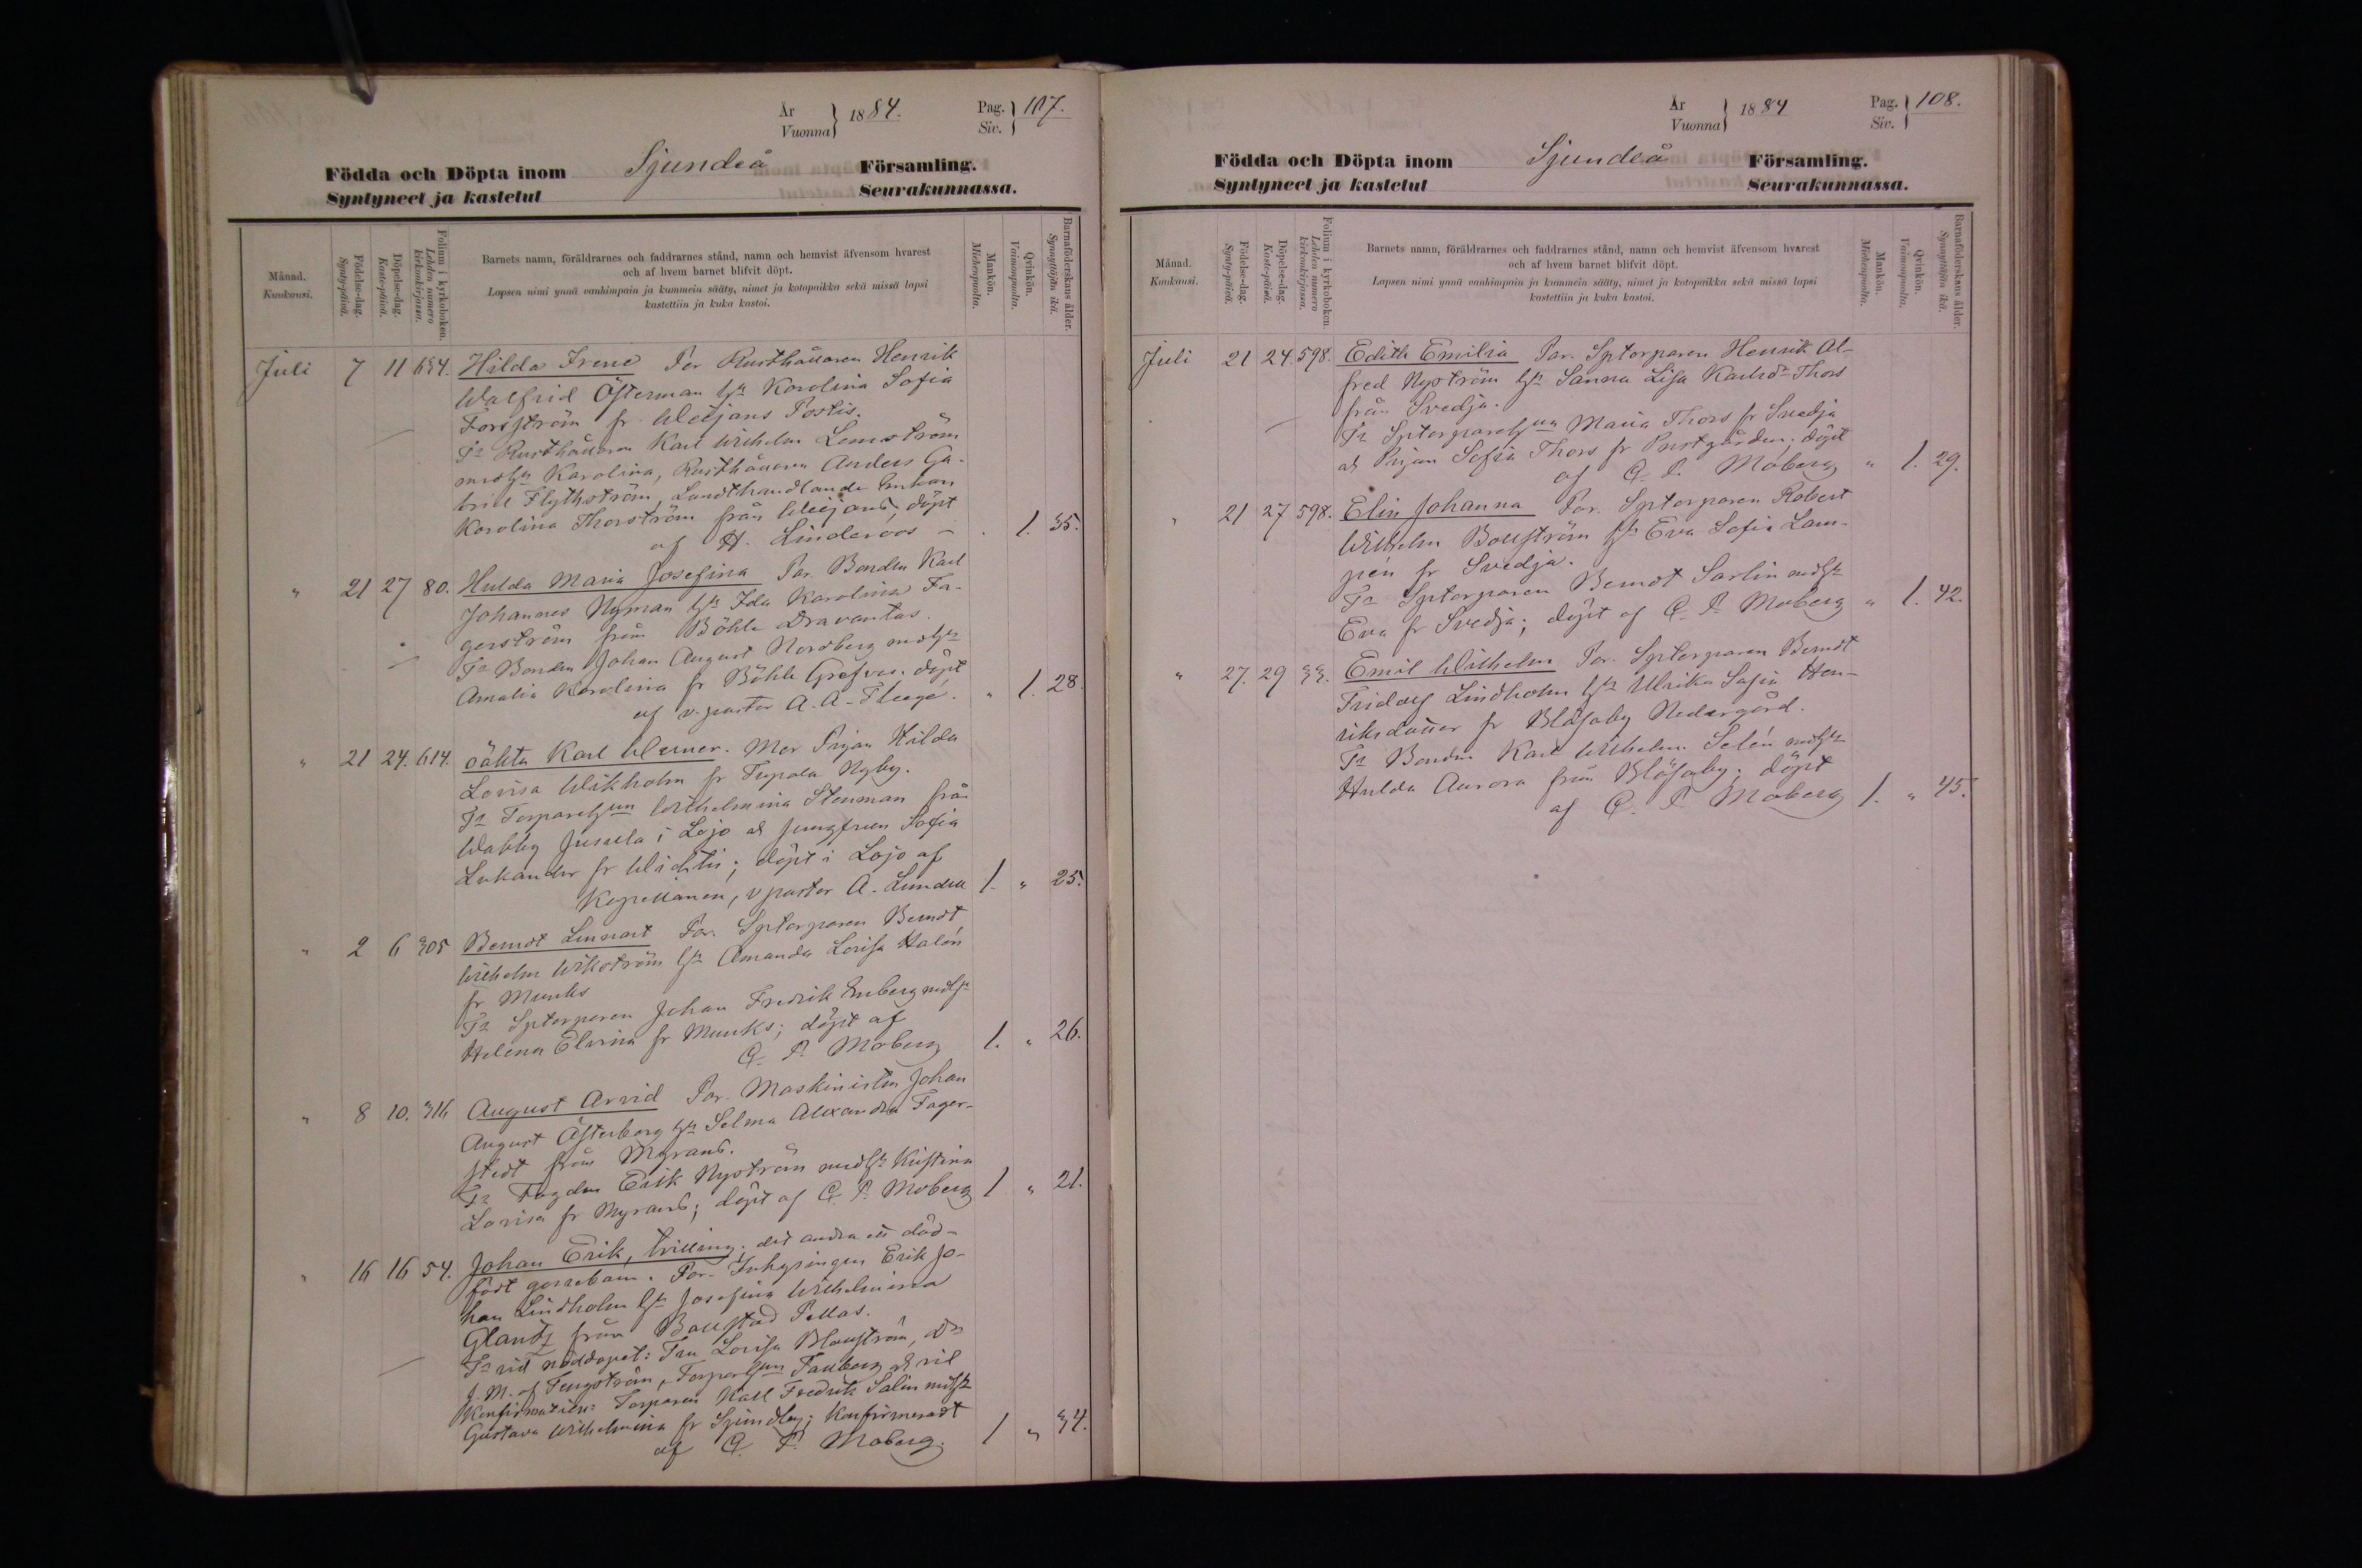 År
Vuonna } 1884.
Pag.
Siv. } 107.
Födda och Döpta inom Sjundeå Församling.
Syntyneet ja kastetut Seurakunnassa.
Månad.
Kuukausi.
Födelse-dag.
Synty-päivä.
Döpelse-dag.
Kaste-päivä.
Folium i kyrkoboken.
Lehden numero kirkonkirjassa.
Barnets namn, föräldrarnes och faddrarnes stånd, namn och hemvist äfvensom hvarest
och af hvem barnet blifvit döpt.
Lapsen nimi ynnä vanhimpain ja kummein sääty, nimet ja kotopaikka sekä missä lapsi
kastettiin ja kuka kastoi.
Mankön.
Miehenpuolta.
Qvinkön.
Vaimonpuolta.
Barnaföderskans ålder.
Synnyttäjän ikä.
Juli 7 11 654. Hilda Irene Par Rusthållaren Henrik
Walfrid Österman hst Karolina Sofia
Forsström fr Weijans Postis.
Fr Rusthållaren Karl Wilhelm Lemström
mhst Karolina, Rusthållaren Anders Ga-
briel Flythström, Landthandlande Enkan
Karolina Thorström från Weijans, döpt
af H. Linderoos 1. 35.
" 21 27 80. Hulda Maria Josefina Par. Bonden Karl
Johannes Nyman hst Ida Karolina Fa-
gerström från Böhle Dravantas.
Fr Bonden Johan August Nordberg mhst
Amalia Karolina fr Böhle Grefvas. döpt
af v. pastor A. A. Flege. " 1. 28.
" 21 24. 614. oäkta Karl Werner. Mor Pigan Hilda
Lovisa Wikholm fr Tupala Nyby.
Fr Torpareh:un Wilhelmina Stenman från
Wabby Jusula i Lojo & Jungfrun Sofia
Lukander fr Wichtis; döpt i Lojo af
Kapellanen, v pastor A. Lundell 1. " 25.
" 2 6 305 Berndt Lennart Par. Sptorparen Berndt
Wilhelm Wikström hst Amanda Lovisa Halén
fr Munks
Fr Sptorparen Johan Fredrik Enberg mhst
Helena Elvina fr Munks; döpt af
C. P. Moberg 1. " 26.
" 8 10. 316 August Arvid Par. Maskinisten Johan
August Österberg hst Selma Alexandra Fager-
stedt från Myrans.
Fr Fogden Erik Nyström mhst Kristina
Lovisa fr Myrans; döpt af C. P. Moberg 1 " 21.
" 16 16 54. Johan Erik, tvilling; det andra ett död-
födt gossebarn. Par. Inhysingen Erik Jo-
han Lindholm hst Josefina Wilhelmina
Glantz från Bollstad Pellas.
Fr vid nöddopet: Fru Lovisa Blomström, Dr
J. M. af Tengström, Torpareh:un Tallberg & vid
Konfirmation: Torparen Karl Fredrik Salin mhst
Gustava Wilhelmina fr Spindby; konfirmeradt
af C. P. Moberg. 1 " 34.
År
Vuonna } 1884
Pag.
Siv. } 108.
Födda och Döpta inom Sjundeå Församling.
Syntyneet ja kastetut Seurakunnassa.
Månad.
Kuukausi.
Födelse-dag.
Synty-päivä.
Döpelse-dag.
Kaste-päivä.
Folium i kyrkoboken.
Lehden numero kirkonkirjassa.
Barnets namn, föräldrarnes och faddrarnes stånd, namn och hemvist äfvensom hvarest
och af hvem barnet blifvit döpt.
Lapsen nimi ynnä vanhimpain ja kummein sääty, nimet ja kotopaikka sekä missä lapsi
kastettiin ja kuka kastoi.
Mankön.
Miehenpuolta.
Qvinkön.
Vaimonpuolta.
Barnaföderskans ålder.
Synnyttäjän ikä.
Juli 21 24. 598. Edith Emilia Par. Sptorparen Henrik Al-
fred Nyström hst Sanna Lisa Karlsdr Thors
från Svedja.
Fr Sptorpareh:un Maria Thors fr Svedja
& Pigan Sofia Thors fr Prestgården; döpt
af C. P. Moberg " 1. 29.
" 21 27 598. Elin Johanna Par. Sptorparen Robert
Wilhelm Bollström hst Eva Sofia Lam-
pén fr Svedja.
Fr Sptorparen Berndt Sarlin mhst
Eva fr Svedja; döpt af C. P. Moberg " 1. 42.
" 27. 29 33. Emil Wilhelm Par. Sptorparen Berndt
Fridolf Lindholm hst Ulrika Sofia Hen-
riksdotter fr Blåsaby Nedergård.
Fr Bonden Karl Wilhelm Selén mhst
Hulda Aurora från Blåsaby; döpt
af C. P. Moberg 1. " 45.